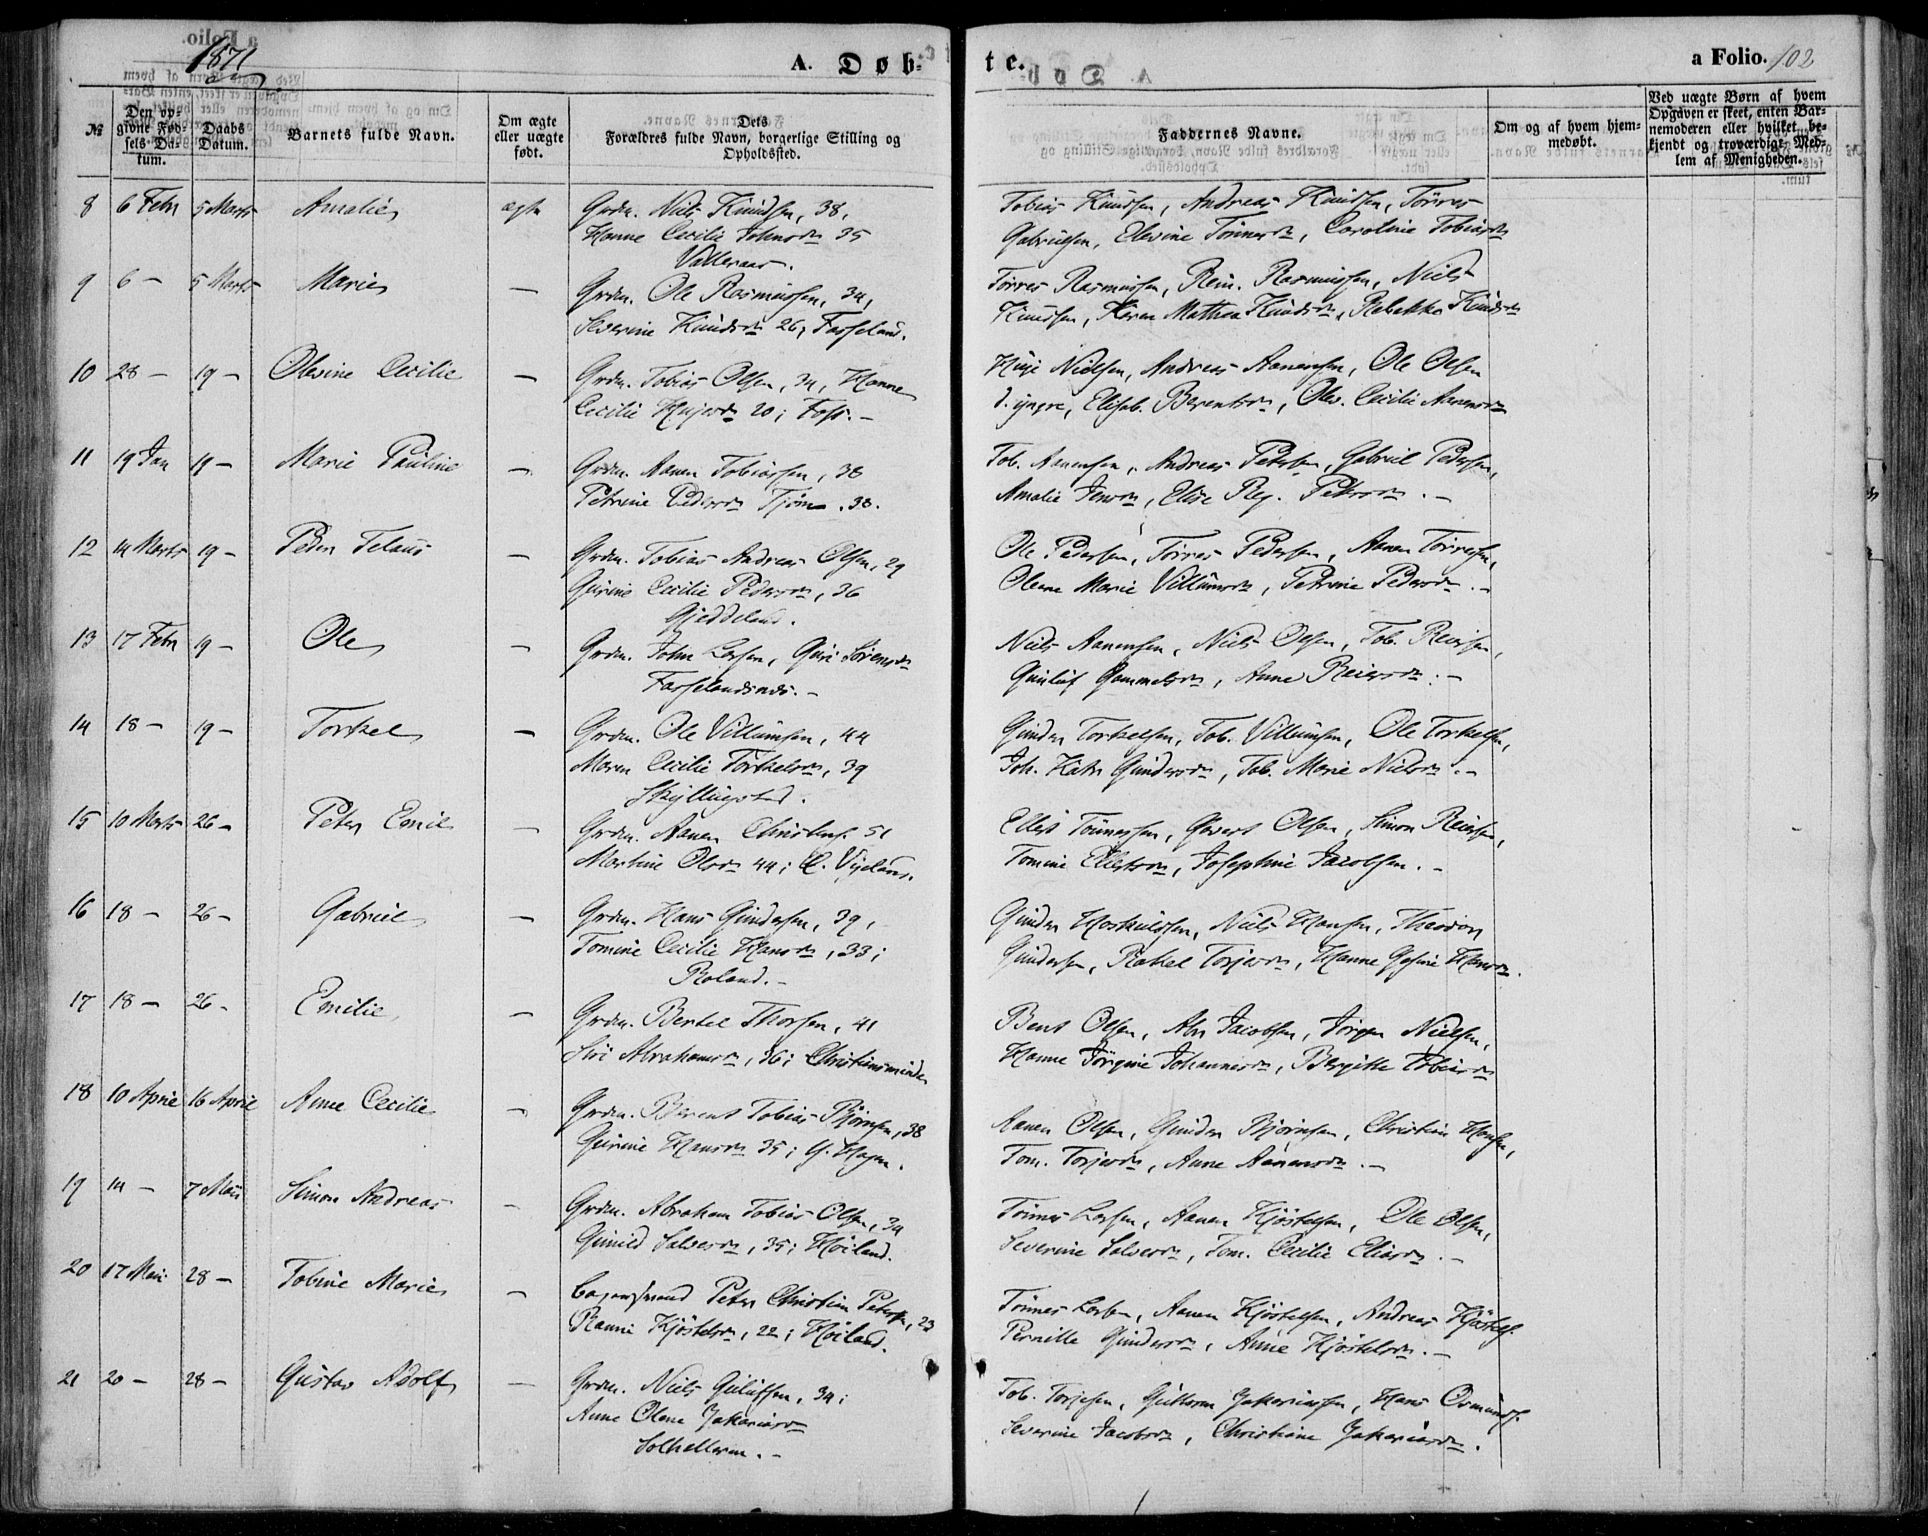 1871
A. Døb-
te.
a Folio. 102
№
Den op-
givne Fød-
sels Da-
tum.
Daabs
Datum.
Barnets fulde Navn.
Om ægte
eller uægte
født.
Dets
Forældres fulde Navn, borgerlige Stilling og
Opholdssted.
Faddernes Navne.
Om og af hvem hjem-
medøbt.
Ved uægte Børn af hvem
Opgaven er skeet, enten Bar-
nemoderen eller hvilket be-
kjendt og troværdigt Med-
lem af Menigheden.
8 6 Febr 5 Marts Amalie ægte Grdm. Niels Knudsen, 38,
Hanne Cecilie Johnsdr 35
Valleraas.
Tobias Knudsen, Andreas Knudsen, Tørres
Gabrielsen, Elevine Tønnesdr, Caroline Tobiasdr
9 6 – 5 Marts Marie – Grdm. Ole Rasmussen, 34,
Severine Knudsdr 26, Fasseland.
Tørres Rasmussen, Rein. Rasmussen, Niels
Knudsen, Karen Mathea Knudsdr, Rebekka Knudsdr
10 28 – 19 – Olevine Cecilie – Grdm. Tobias Olsen, 34, Hanne
Cecilie 20; Foss. –
Nielsen, Andreas Aanensen, Ole Olsen
d. yngre, Elisab. Berentsdr, Olev. Cecilie Aanensdr
11 19 Jan 19 – Marie Pauline – Grdm. Aanen Tobiassen, 38
Petrine Pedersdr Tjøm. 38.
Tob. Aanensen, Andreas Petersen, Gabriel Pedersen,
Amalie Jensdr, Elise Reg. Petersdr. –
12 14 Marts 19 – Peder Telaus – Grdm. Tobias Andreas Olsen, 29
Gurine Cecilie Pedersdr, 36
Gjeddeland.
Ole Pedersen, Tørres Pedersen, Aanen Tørressen,
Olene Marie Villumsdr, Petrine Pedersdr. –
13 17 Febr 19 – Ole – Grdm. John Larsen, Guri Sørensdr
Fasselandsnes. –
Niels Aanensen, Niels Olsen, Tob. Reiersen,
Gunluf Gammelsdr, Anne Reiersdr. –
14 18 – 19 – Torkel – Grdm. Ole Villumsen, 44
Maren Cecilie Torkelsdr, 39
Skyllingstad.
Gunder Torkelsen, Tob. Villumsen, Ole Torkelsen,
Joh. Kathr Gundersdr, Tob. Marie Nielsdr. –
15 10 Marts 26 – Peter Emil – Grdm. Aanen Christens. 51
Martine Olsdr 44; Vigeland.
Ellest Tønnessen, Govert Olsen, Simon Reiersen,
Tomine Ellestsdr, Josephine Jacobsen. –
16 18 – 26 – Gabriel – Grdm. Hans Gundersen, 39,
Tomine Cecilie Hansdr, 33;
Roland. –
Gunder Hoskuldsen, Niels Hansen, Theodor
Gundersen, Rakel Torjersdr, Hanne Gesine Hansdr.
17 18 – 26 – Emilie – Grdm. Bertel Thorsen, 41
Siri Abrahamsdr, 36; Christiansminde
Bent Olsen, Abr Jacobsen, Jørgen Nielsen,
Hanne Jørgine Johannesdr, Bergitte Tobiasdr
18 10 April 16 April Anne Cecilie – Grdm. Berent Tobias Bjørnsen, 38
Gurine Hansdr 35; Y. Hagen.
Aanen Olsen, Gunder Bjørnsen, Christian Hansen,
Tom. Torjersdr, Anne Aanensdr. –
19 14 – 7 Maii Simon Andreas – Grdm. Abraham Tobias Olsen, 34
Gunild Salvesdr, 35; Høiland.
Tønnes Larsen, Aanen Kjøstelsen, Ole Olsen,
Severine Salvesdr, Tom. Cecilie Eliasdr. –
20 17 Mai 28 – Tobine Marie – Peter Christian Petersen, 23
Ranni Kjøstelsdr, 22; Høiland.
Tønnes Larsen, Aanen Kjøstelsen, Andreas Kjøstels.
Pernille Gundersdr, Anne Kjøstelsdr. –
21 20 – 28 – Gustav Adolf – Grdm. Niels Guluffsen, 34;
Anne Olene Zakariasdr
Solhelleren. –
Tob. Torjesen, Guttorm Zakariassen, Hans Osmunds.
Severine Jacobsdr, Christiane Zakariasdr.